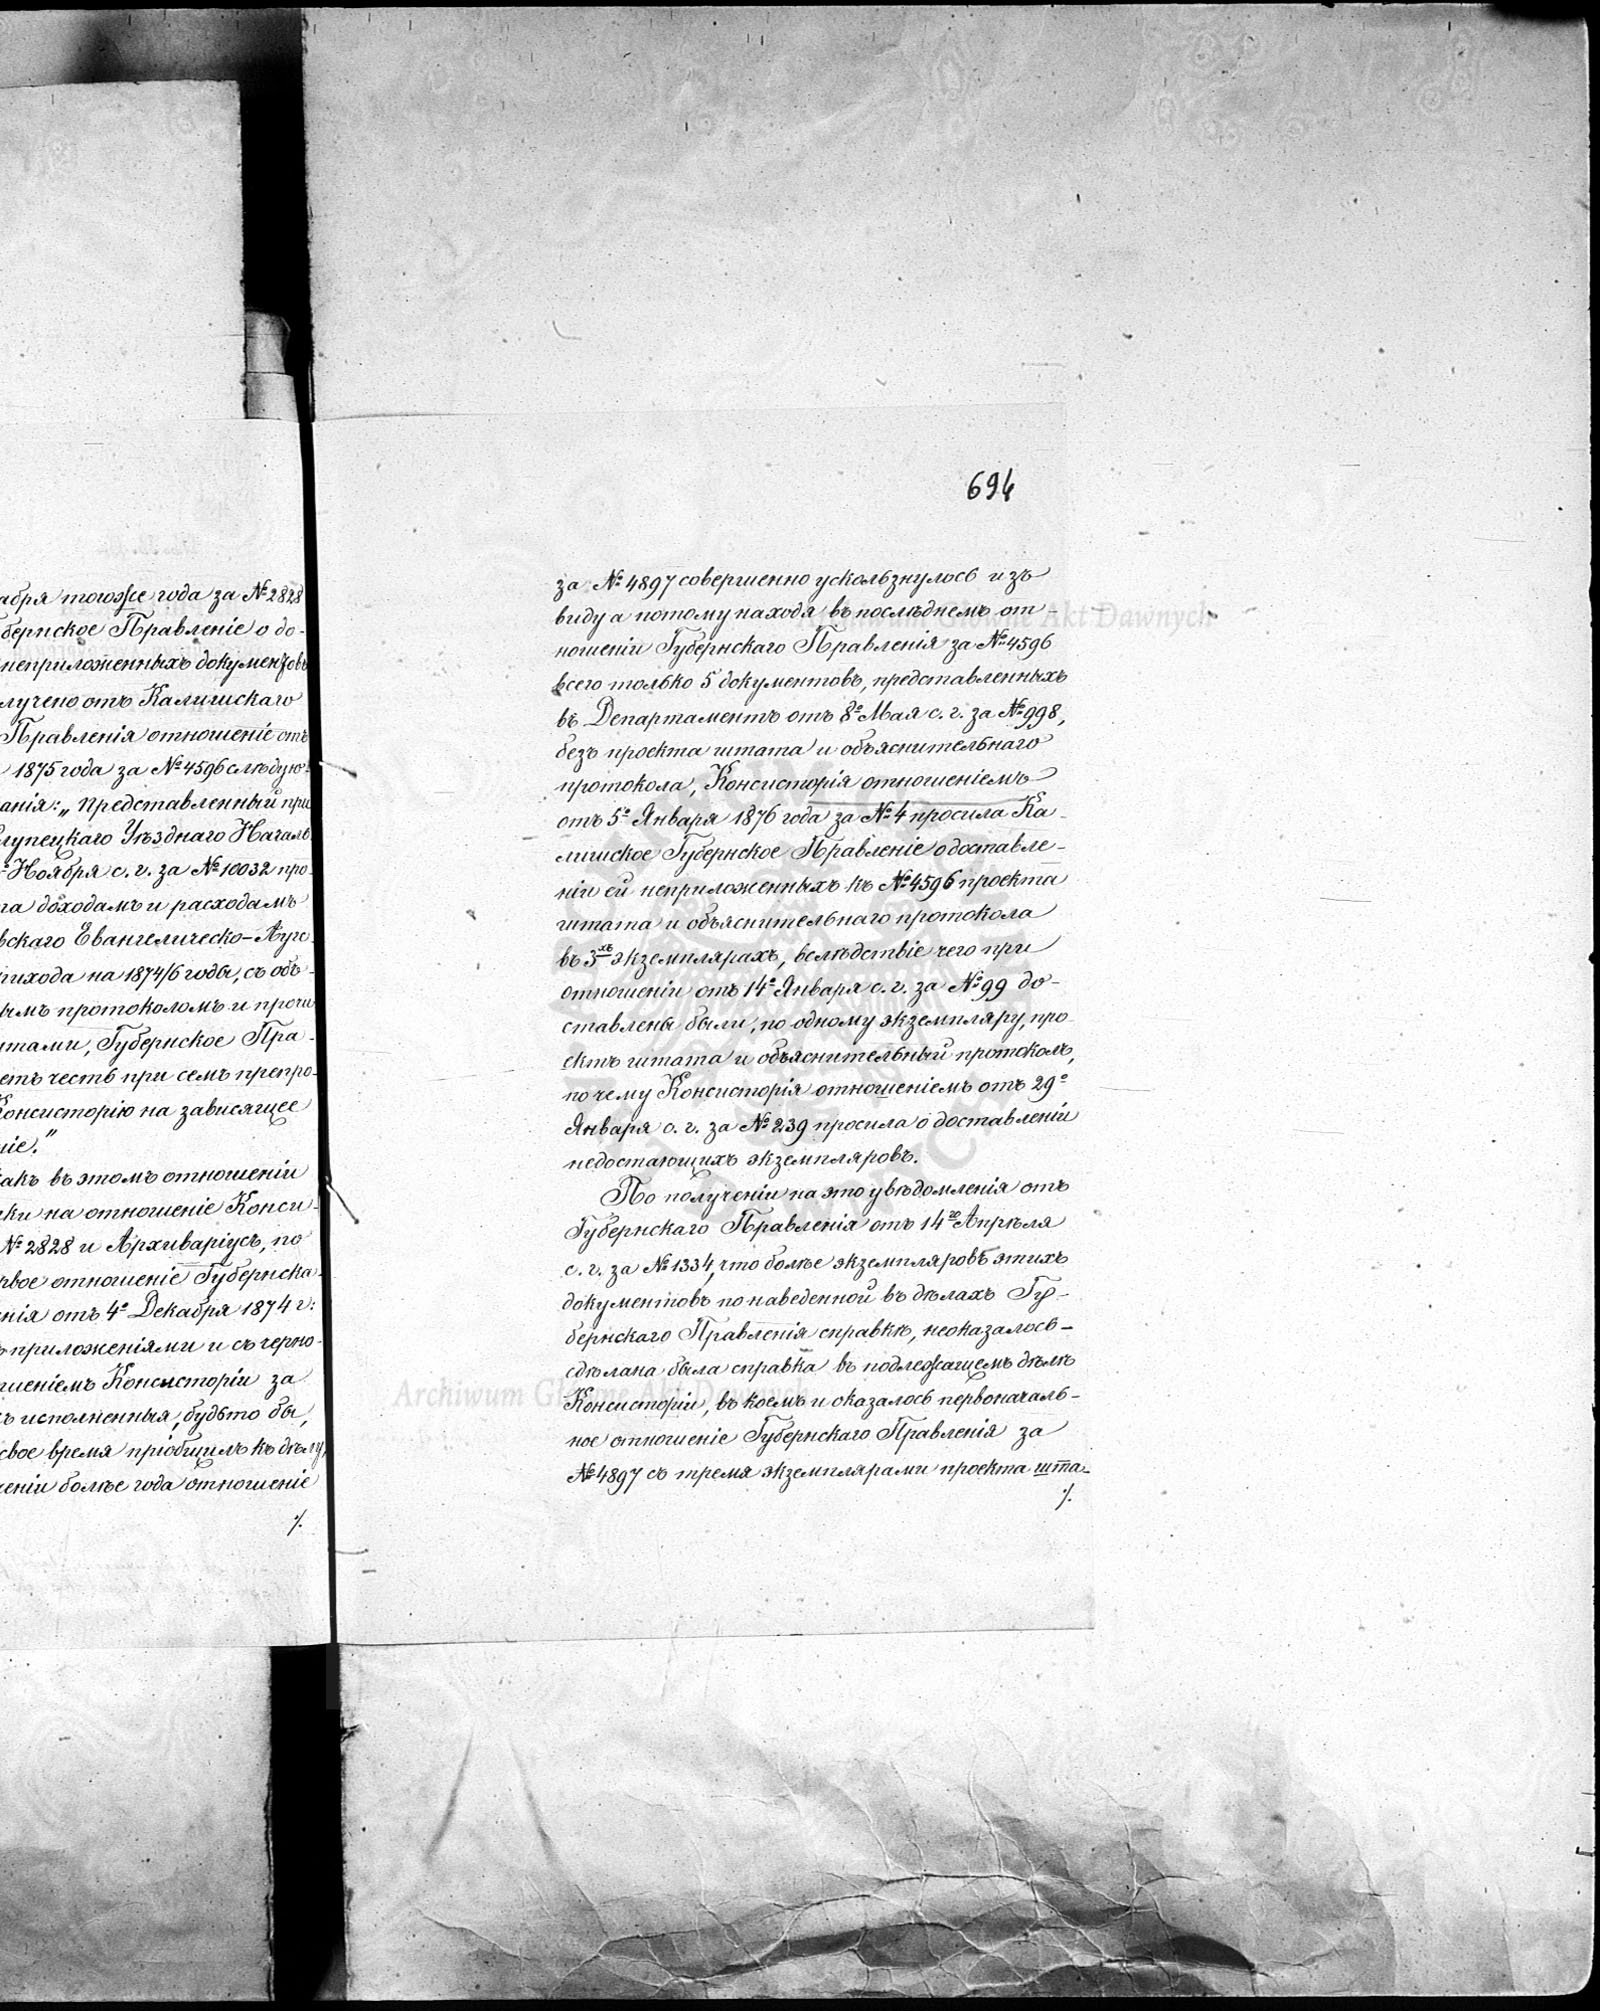 абря тогоже года за № 2828
бернское Правленіе о до-
неприложенныхъ документовъ
лучено отъ Калишскаго
Правленія отношеніе отъ
1875 года за № 4596 слѣдую-
анія: „Представленный при
лупецкаго Уѣзднаго Началь
Ноября с. г. за № 10032 про-
та доходамъ и расходамъ
вскаго Евангелическо-Ауго
рихода на 1874/6 годы, съ объ-
ымъ протоколомъ и прочи
нтами, Губернское Пра-
етъ честь при семъ препро-
Консисторію на зависящее
ніе."
акъ въ этомъ отношеніи
лки на отношеніе Конси-
№ 2828 и Архиваріусъ, по
рвое отношеніе Губернска-
нія отъ 4º Декабря 1874 г:
приложеніями и съ черно-
шеніемъ Консисторіи за
ъ исполненныя, будьто бы,
свое время пріобщилъ къ дѣлу,
ченіи болѣе года отношеніе
./.
694
за № 4897 совершенно ускользнулось изъ
виду а потому находя въ послѣднемъ от-
ношеніи Губернскаго Правленія за № 4596
всего только 5 документовъ, представленныхъ
въ Департаментъ отъ 8º Мая с. г. за № 998,
безъ проекта штата и объяснительнаго
протокола, Консисторія отношеніемъ
отъ 5º Января 1876 года за № 4 просила Ка-
лишское Губернское Правленіе о доставле-
ніи ей неприложенныхъ къ № 4596 проекта
штата и объяснительнаго протокола
въ 3хъ экземплярахъ, вслѣдствіе чего при
отношеніи отъ 14º Января с. г. за № 99 до-
ставлены были, по одному экземпляру, про-
ектъ штата и объяснительный протоколъ,
почему Консисторія отношеніемъ отъ 29º
Января с. г. за № 239 просила о доставленіи
недостающихъ экземпляровъ.
По полученіи на это увѣдомленія отъ
Губернскаго Правленія отъ 14го Апрѣля
с. г. за № 1334, что болѣе экземпляровъ этихъ
документовъ по наведенной въ дѣлахъ Гу-
бернскаго Правленія справкѣ, неоказалось-
сдѣлана была справка въ подлежащемъ дѣлѣ
Консисторіи, въ коемъ и оказалось первоначаль-
ное отношеніе Губернскаго Правленія за
№ 4897 съ тремя экземплярами проекта шта-
./.
Archiwum Główne Akt Dawnych
Archiwum Główne Akt Dawnych